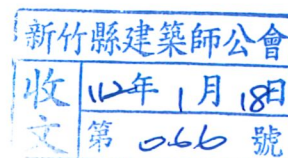 新竹縣建築師公會
收文
112年1月18日
第066號